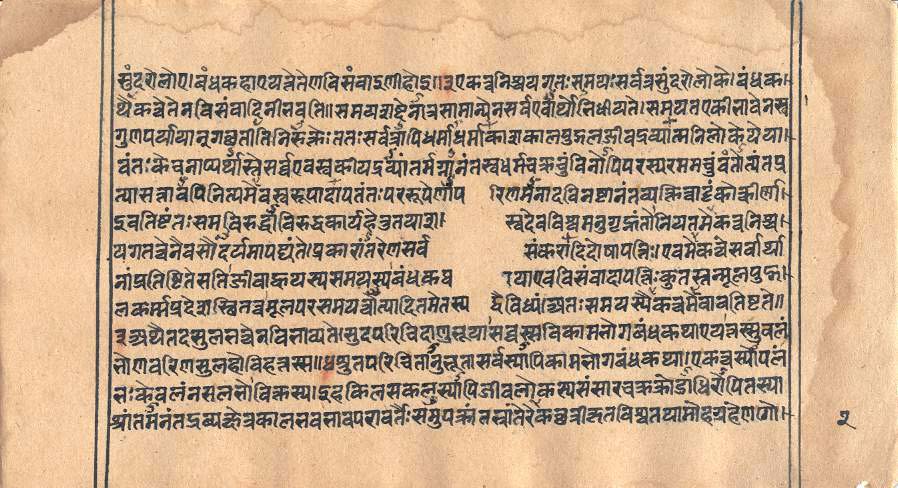 सुंदरो लोए। बंधकहा एयत्ते तेण विसंवाइणी होइ॥३ एकत्वनिश्चयगतः समयः सर्वत्र सुंदरो लोके। बंधक
थैकत्वे तेन विसंवादिनी भवति॥ समयशब्देनात्र सामान्येन सर्व एवार्थोभिधीयते। समयत एकीभावेन स्व
गुणपर्यायान् गच्छतीति निरुक्तेः ततः सर्वत्रापि धर्माधर्माकाशकालपुद्गलजीवद्रव्यात्मनि लोके ये या
वंतः केचनाप्यर्थास्ते सर्व एव स्वकीयद्रव्यांतर्मग्नानंतस्वधर्मचक्रचुंबिनोपि परस्परमचुंबंतोत्यंतप्र
त्यासत्तावपि नित्यमेव स्वरूपादपतंतः पररूपेणाप रिणमनादविनष्टानंतव्यक्तित्वाट्टंकोत्कीर्णा
इव तिष्टंतः समस्तविरुद्धाविरुद्धकार्यहेतुतया श श्वदेव विश्वमनुगृह्णंतो नियतमेकत्वनिश्च
यगतत्वेनैव सौंदर्यमापद्यंते। प्रकारांतरेण सर्व संकरादिदोषापत्तिः। एवमेकत्वे सर्वार्था
नां प्रतिष्टिते सति जीवाह्वयस्य समयस्य बंधकथ ाया एव विसंवादापत्तिः कुतस्तन्मूलपुद्ग
लकर्मप्रदेशस्थितत्वमूलपरसमयत्वोत्पादितमेतस्य द्वैविध्यं। अतः समयस्यैकत्वमेवावतिष्टते॥
३ अथैतदसुलभत्वेन विभाव्यते। सुदपरिचिदाणुभूया सव्वस्स वि कामभोगबंधकथा एयत्तस्सुवलं
भो णवरि ण सुलहो विहत्तस्स॥ ४ श्रुतपरिचितानुभूता सर्वस्यापि कामभोगबंधकथा। एकत्वस्योपलं
भः केवलं न सुलभो विभक्तस्य। इह किल सकलस्यापि जीवलोकस्य संसारचक्रक्रोडाधिरोपितस्या
श्रांतमनंतद्रव्यक्षेत्रकालभवभावपरावर्तैः समुपक्रांतभ्रांतेरेकच्छत्रीकृतविश्वतया मोहग्रहेण गो
२